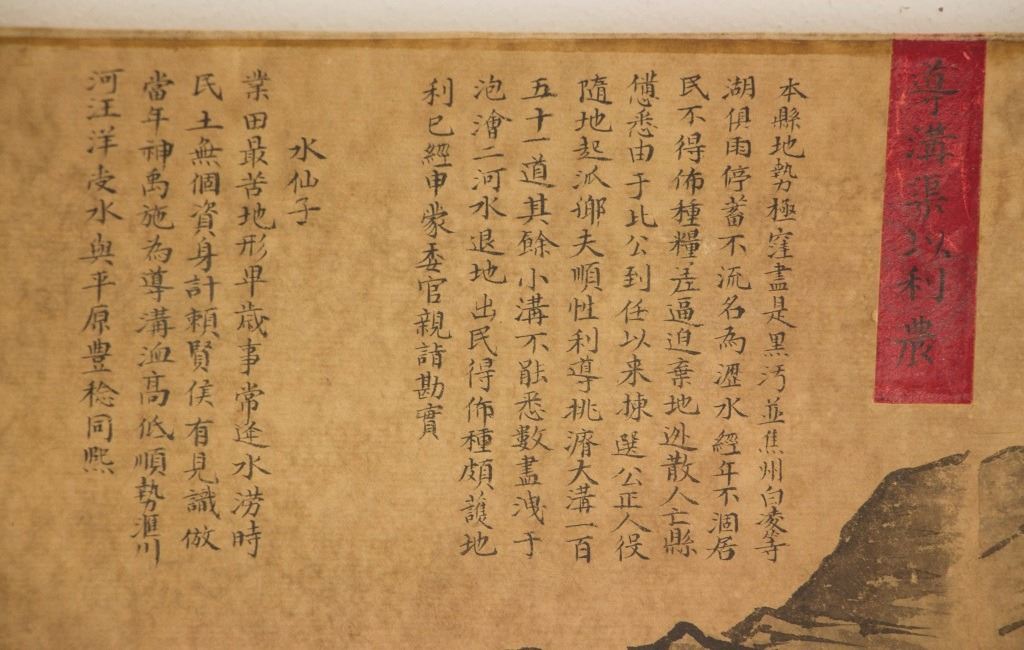 導溝渠以利農
本縣地勢極窪盡是黑汚並焦州白凌等
湖俱雨停蓄不流名為瀝水經年不涸居
民不得佈種糧差逼迫棄地逃散人亡縣
憊悉由于此公到任以来揀選公正人役
隨地起派鄉夫順性利導挑濬大溝一百
五十一道其餘小溝不能悉數盡洩于
泡澮二河水退地出民得佈種頗護地
利已經申蒙委官親詣勘實
水仙子
業田最苦地形卑歲事常逢水澇時
民土無個資身計賴賢侯有見識倣
當年神禹施為導溝洫高低順勢滙川
河汪洋受水與平原豊稔同熙